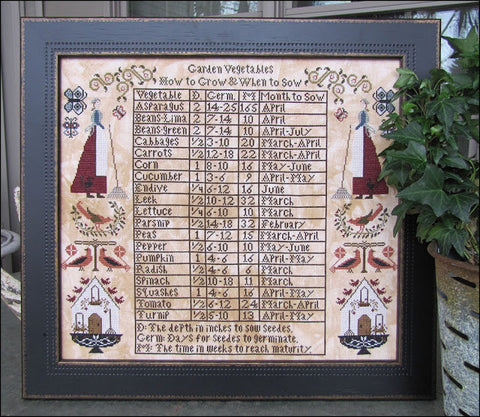 Garden Vegetables
How to Grow & When to Sow
Vegetable D Germ. M Month to Sow
Asparagus 2 14-25 165 April
Beans-Lima 2 7-14 10 April
Beans-green 2 7-14 10 April-July
Cabbages 1/2 3-10 20 March-April
Carrots 1/2 12-18 22 March-April
Corn 1 8-10 16 May-June
Cucumber 1 3-6 9 April-May
Endive 1/4 6-12 16 June
Leek 1/2 10-12 32 March
Lettuce 1/4 6-10 10 March
Parsnip 1/2 14-18 32 February
Peas 1 7-12 15 March-April
Pepper 1/2 6-10 10 May-June
Pumpkin 1 4-6 16 April-May
Radish 1/2 4-6 6 March
Spinach 1/2 10-18 11 March
Squashes 1 4-6 16 April-May
Tomato 1/2 6-12 24 March-April
Turnip 1/2 5-10 13 April-May
D: The depth in inches to sow seedes.
Germ: Days for seedes to germinate.
M: The time in weeks to reach maturity.